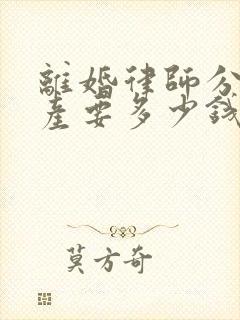 離婚律師分
産要多少錢
莫方奇